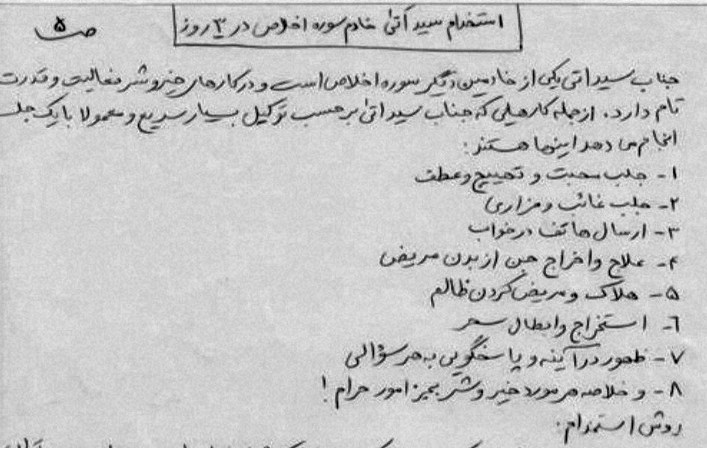 استخدام سید آتی خادم سوره اخلاص در ۳ روز
ص ۵
جناب سید اتی یکی از خادمین دیگر سوره اخلاص است و در کارهای خیر و شر فعالیت و قدرت
تام دارد. از جمله کارهایی که جناب سید اتی بر حسب توکیل بسیار سریع و معمولا با یک جلسه
انجام می دهد اینها هستند:
۱- جلب محبت و تهییج و عطف
۲- جلب غائب و فراری
۳- ارسال هاتف در خواب
۴- علاج و اخراج جن از بدن مریض
۵- هلاک و مریض کردن ظالم
۶- استخراج و ابطال سحر
۷- ظهور در آینه و پاسخگویی به هر سؤالی
۸- و خلاصه هر مورد خیر و شر بجز امور حرام!
روش استخدام: